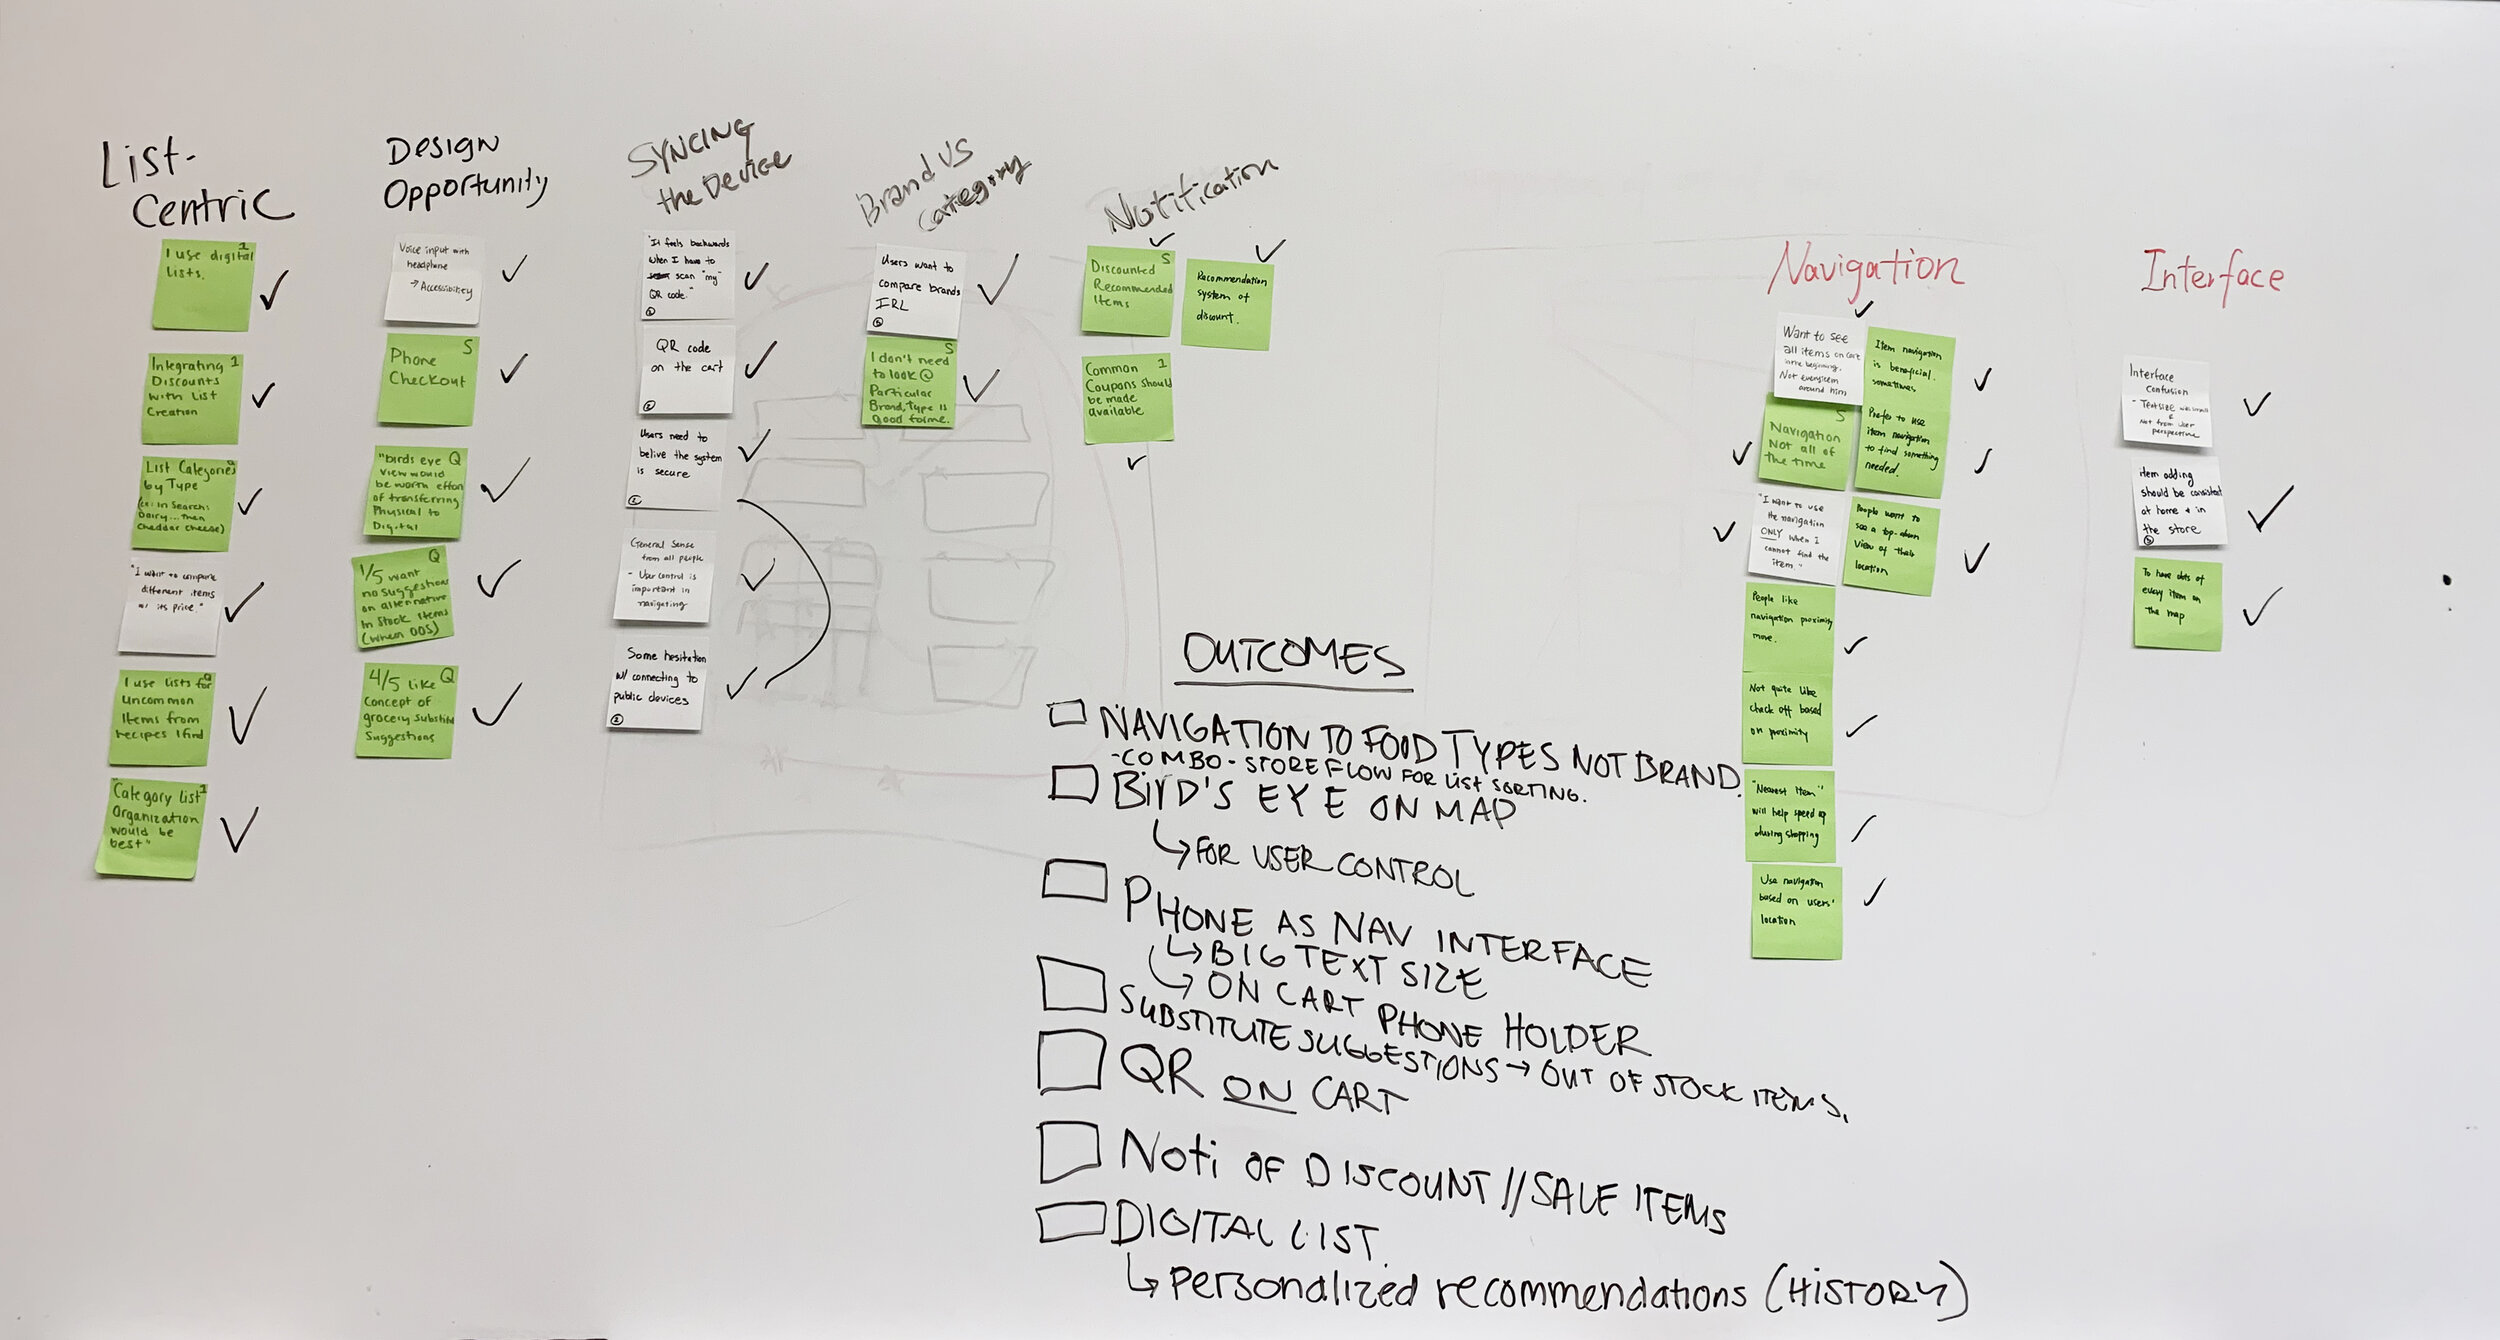 List-
Centric
I use digital 1
lists.
Integrating 1
Discounts
with List
Creation
List Categories Q
by Type
(ex: in Search:
Dairy... then
cheddar cheese)
"I want to compare
different items
w/ its price."
I use lists for Q
uncommon
items from
recipes I find
"Category list 1
Organization
would be
best"
Design
Opportunity
Voice input with
headphone
→ Accessibility
Phone S
Checkout
"birds eye Q
view would
be worth effort
of transferring
Physical to
Digital
Q
1/5 want
no suggestions
on alternative
In Stock items
(when OOS)
4/5 like Q
concept of
grocery substitute
suggestions
SYNCING
the Device
"It feels backwards
when I have to
scan "my"
QR code."
QR code
on the cart
Users need to
belive the system
is secure
General Sense
from all people
- User control is
important in
navigating
Some hesitation
w/ connecting to
public devices
Brand vs
Category
Users want to
compare brands
IRL
S
I don't need
to look @
Particular
Brand, Type is
good for me.
Notification
S
Discounted
Recommended
Items
Recommendation
system of
discount.
Common 1
Coupons should
be made
available
Navigation
Want to see
all items on cart
in the beginning.
Not every item
around him
Item navigation
is beneficial.
sometimes
S
Navigation
Not all of
the time
Prefer to use
item navigation
to find something
needed.
"I want to use
the navigation
ONLY when I
cannot find the
item."
People want to
see a top-down
view of their
location
People like
navigation proximity
more.
Not quite like
check off based
on proximity
"Nearest item"
will help speed up
during shopping
Use navigation
based on users'
location
Interface
Interface
confusion
- Text size was small
&
Not from user
perspective
item adding
should be consistent
at home & in
the store
To have dots of
every item on
the map
OUTCOMES
NAVIGATION TO FOOD TYPES NOT BRAND.
-COMBO - STORE FLOW FOR LIST SORTING.
BIRD'S EYE ON MAP
↳ FOR USER CONTROL
PHONE AS NAV INTERFACE
↳ BIG TEXT SIZE
↳ ON CART PHONE HOLDER
SUBSTITUTE SUGGESTIONS → OUT OF STOCK ITEMS.
QR ON CART
Noti OF DISCOUNT // SALE ITEMS
DIGITAL LIST.
↳ Personalized recommendations (HISTORY)